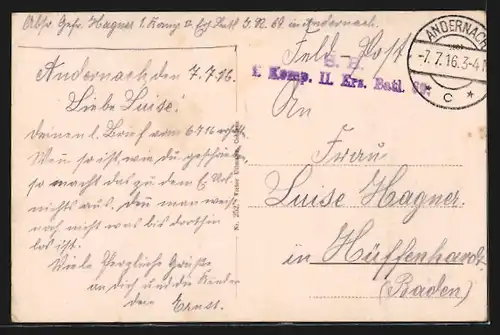 Abs. Gefr. Hagner 1. Komp II Ers. Batl. I. R. 69 in Andernach.
Andernach den 7.7.16.
Liebe Luise!
Deinen l. Brief vom 6.7.16 erhalten.
Wenn so ist, wie du geschrieben
so macht das zu dem
nichts aus. Den man weiß
noch nicht was bis dorthin
los ist.
Viele Herzliche Grüße
an dich und die Kinder
dein
Ernst.
Feld-Post
S. B.
1. Komp. II. Ers. Batl. 69.
ANDERNACH
-7.7.16.3-4
* c *
An
Frau
Luise Hagner.
in Hüffenhardt
(Baden)